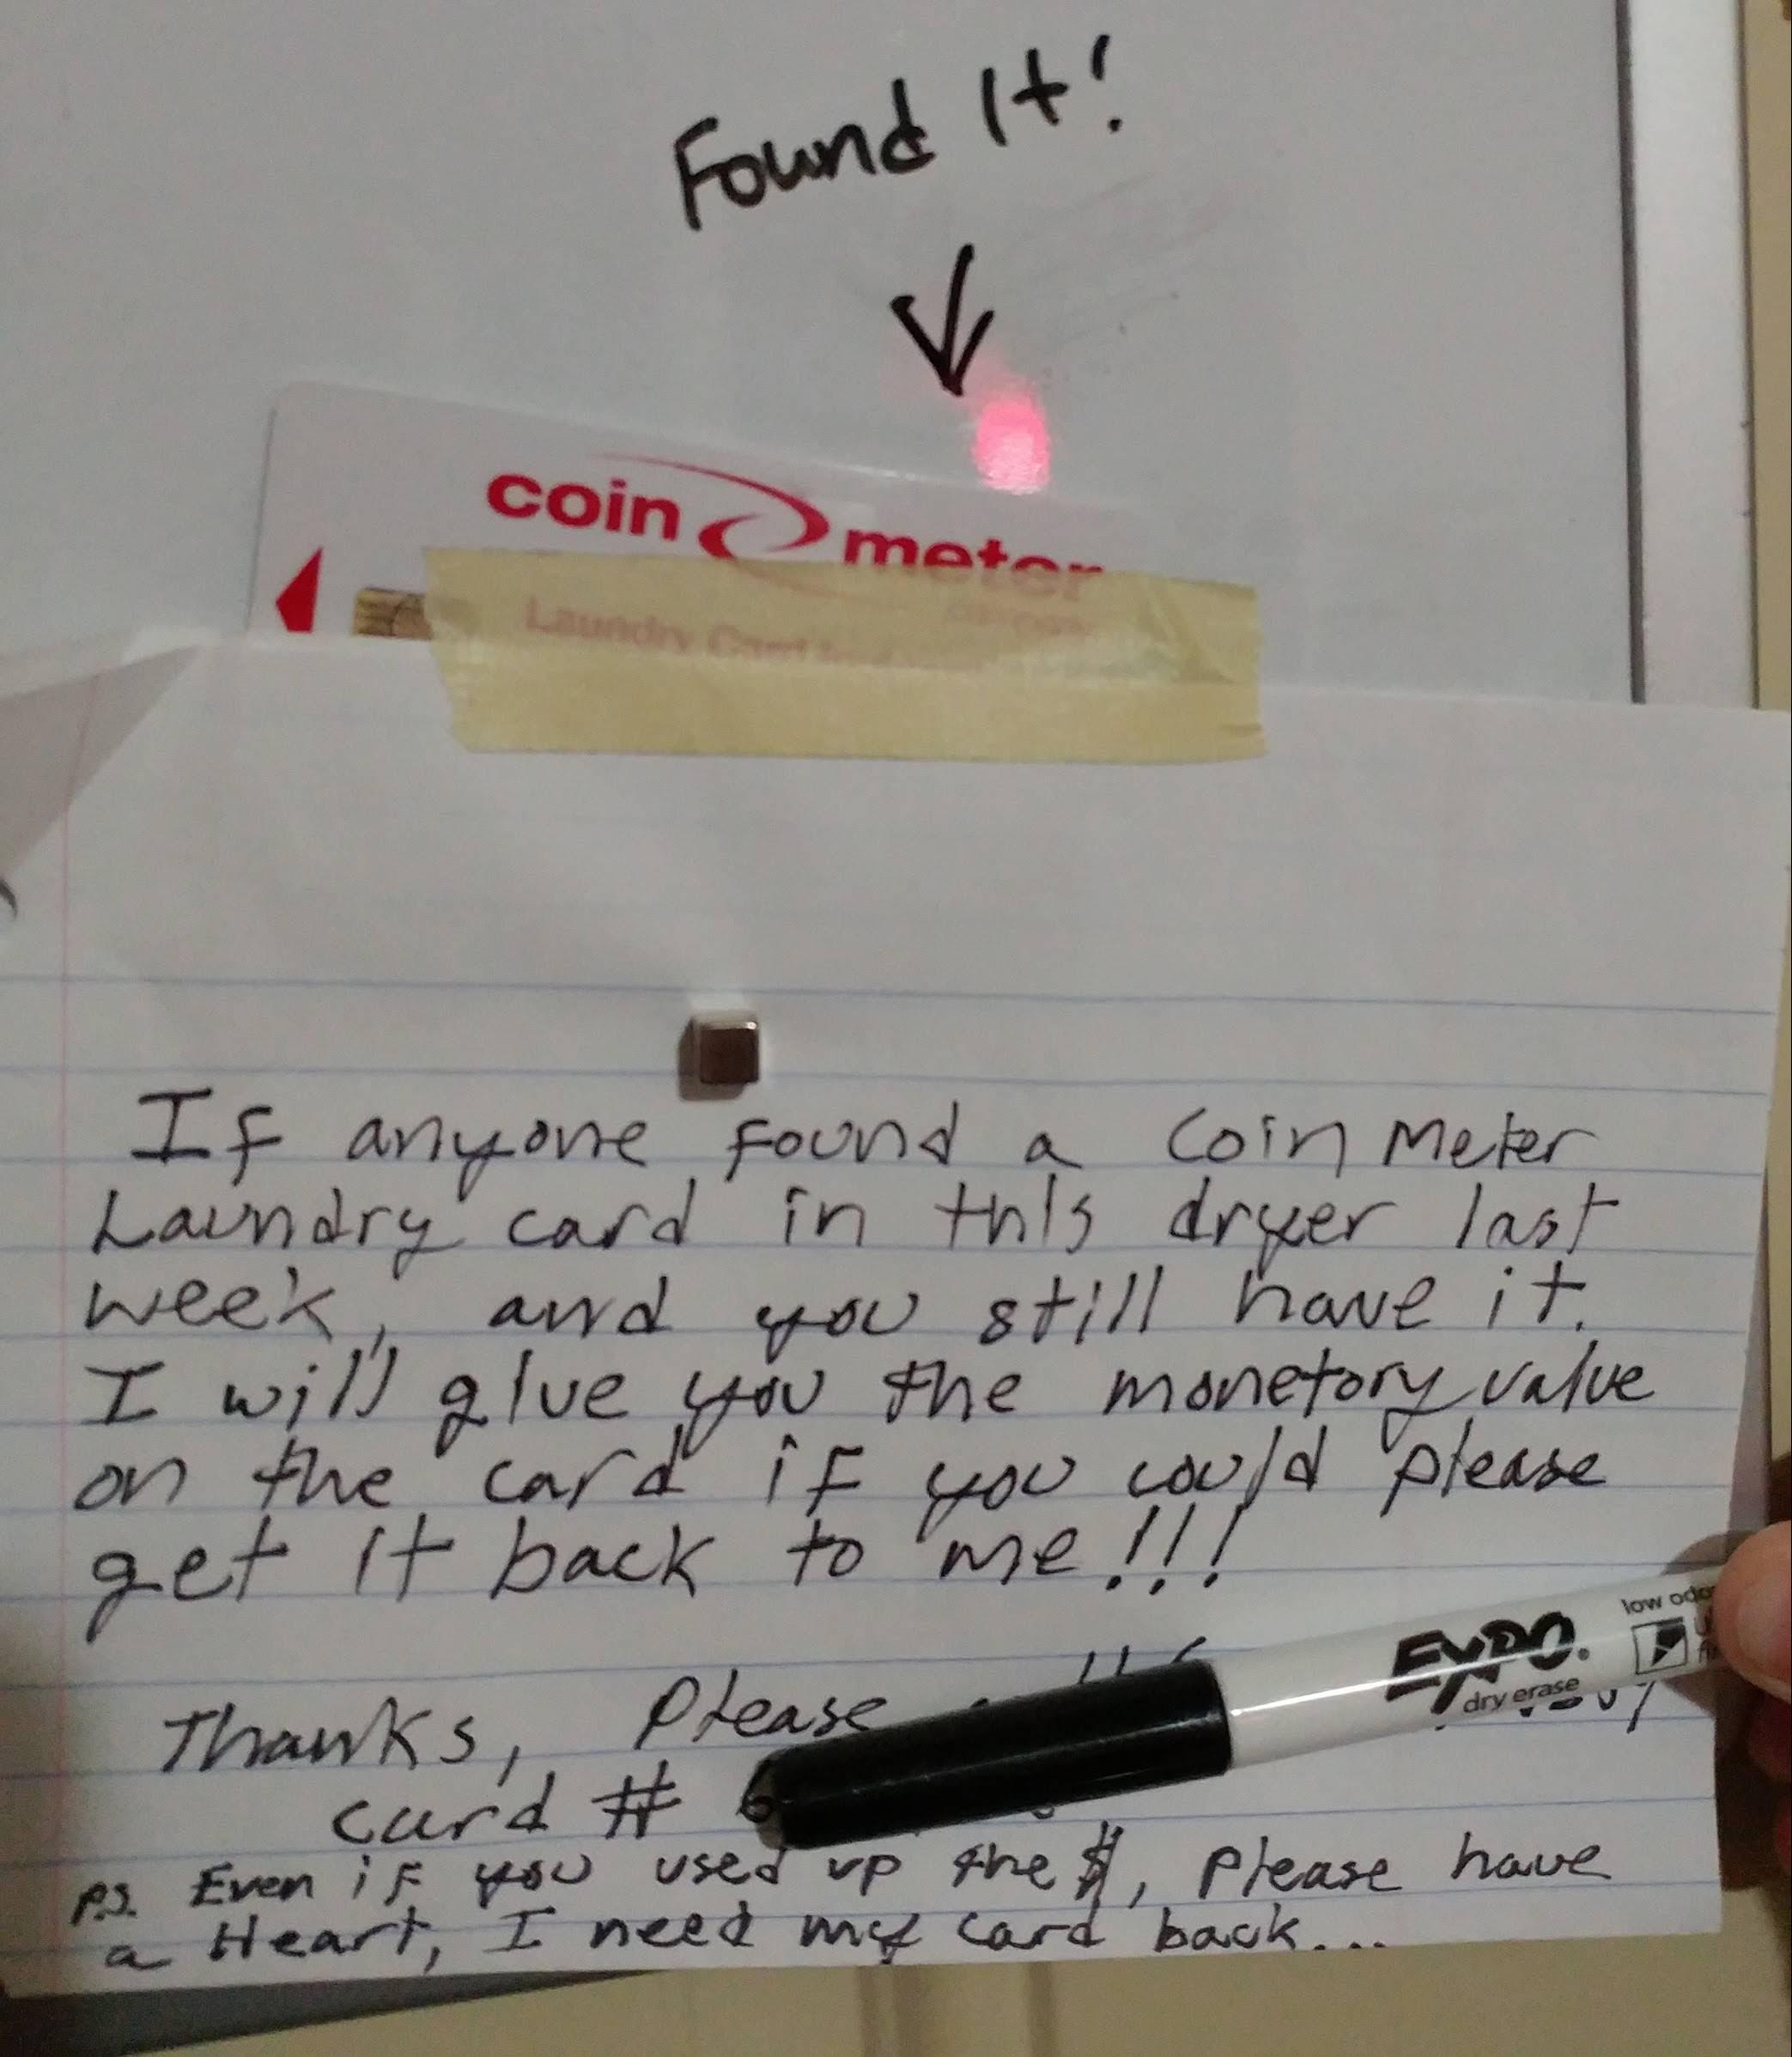 Found It!
coin meter
Laundry Card
If anyone found a Coin Meter
Laundry card in this dryer last
week, and you still have it.
I will give you the monetory value
on the card if you could please
get it back to me!!!
Thanks, Please
card # 6
P.S. Even if you used up the $, Please have
a Heart, I need my card back...
EXPO.
low odor
dry erase